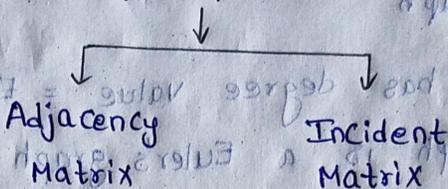 Adjacency
Matrix
Incident
Matrix